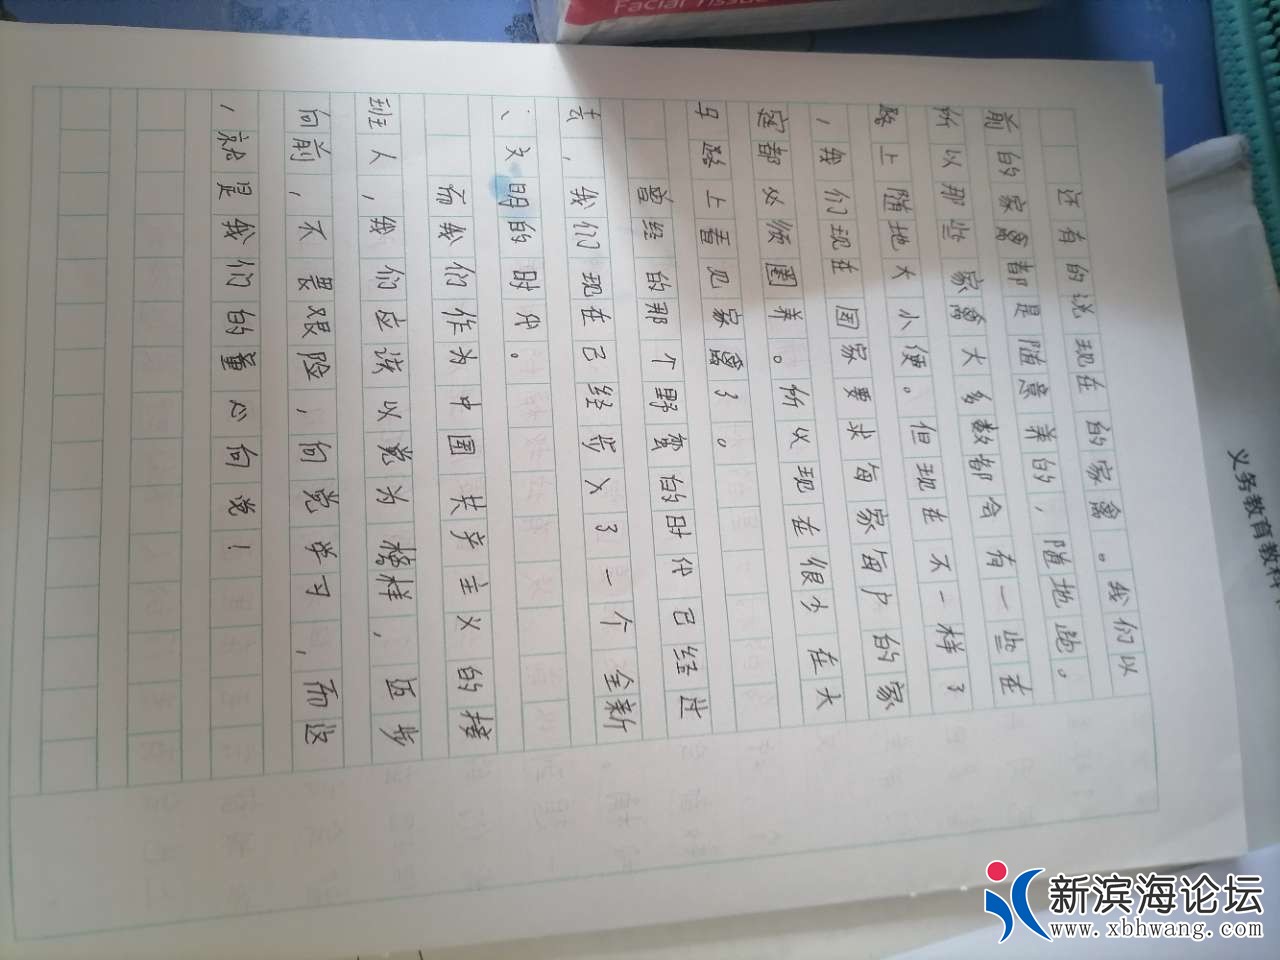 还有的说现在的家禽。我们以
前的家禽都是随意养的，随地跑。
所以那些家禽大多数都会有一些在
路上随地大小便。但现在不一样了
，我们现在国家要求每家每户的家
寇都必须圈养。所以现在很少在大
马路上看见家禽了。
曾经的那个野蛮的时代已经过
去，我们现在已经步入了一个全新
、文明的时代。
而我们作为中国共产主义的接
班人，我们应该以党为榜样，伍步
向前，不畏艰险，向党学习，而这
，就是我们的童心向党！
Facial Tissue
义务教育教科
新滨海论坛
www.xbhwang.com